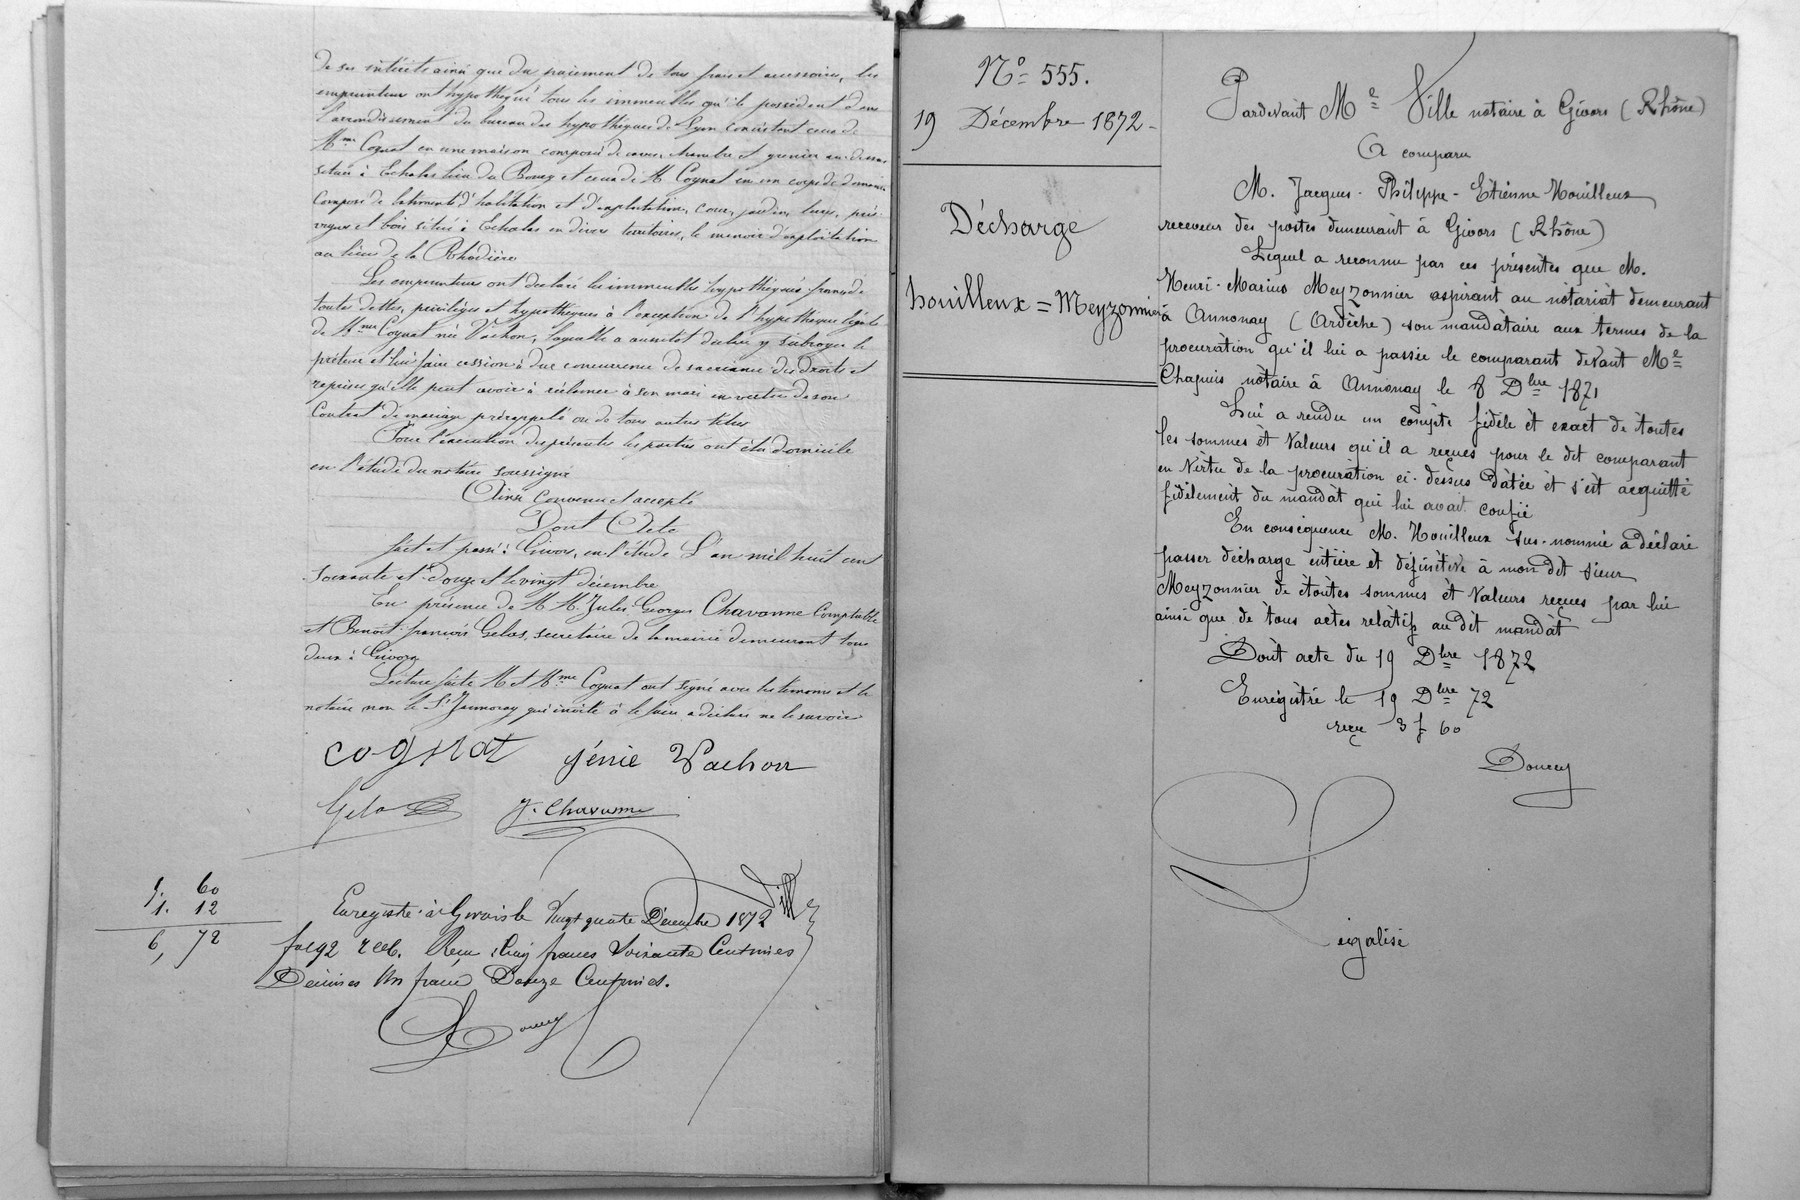 de ses intérêts ainsi que du paiement de tous frais et accessoires, les
emprunteurs ont hypothéqué tous les immeubles qu'ils possèdent dans
l'arrondissement du bureau des hypothèques de Lyon consistant ceux de
Mme Cognat en une maison composée de cave, chambre et grenier au-dessus
située à Echalas lieu du Bourg et ceux de M. Cognat en un corps de domaine
composé de bâtiments d'habitation et d'exploitation, cour, jardin, terres, prés,
vignes et bois situé à Echalas en divers territoires, le manoir d'exploitation
au lieu de la Rhodière
Les emprunteurs ont déclaré les immeubles hypothéqués francs de
toute dettes, privilèges et hypothèques à l'exception de l'hypothèque légale
de Mme Cognat née Vachon, laquelle a aussitôt déclaré y subroger le
prêteur et lui faire cession à due concurrence de sa créance des droits et
reprises qu'elle peut avoir à réclamer à son mari en vertu de son
Contrat de mariage prérappelé ou de tous autres titres
Pour l'exécution des présentes les parties ont élu domicile
en l'étude du notaire soussigné
Ainsi convenu et accepté
Dont Acte
fait et passé à Givors, en l'étude L'an mil huit cent
soixante et douze et le vingt décembre
En présence de M. M. Jules Georges Chavanne Comptable
et Benoit françois Gelas, secrétaire de la mairie demeurant tous
deux à Givors
Lecture faite M et Mme Cognat ont signé avec les témoins et le
notaire non le Sr Jamoray qui invité à le faire a déclaré ne le savoir
cognat génie Vachon
Gelas J. Chavanne
Ville
5. 60
1. 12
6, 72
Enregistré à Givors le Vingt quatre Décembre 1872
fol 92 r c 6. Reçu Cinq francs Soixante Centimes
Décimes Un franc Douze Centimes.
Doucey
No 555.
19 Décembre 1872 -
Décharge
houilleux = Meyzonnier
Pardevant Me Ville notaire à Givors (Rhône)
A comparu
M. Jacques - Philippe - Etienne Houilleux
receveur des postes demeurant à Givors (Rhône)
Lequel a reconnu par ces présentes que M.
Henri - Marius Meyzonnier aspirant au notariat demeurant
à Annonay (Ardèche) son mandataire aux termes de la
procuration qu'il lui a passée le comparant devant Me
Chapuis notaire à Annonay le 8 Dbre 1871
Lui a rendu un compte fidèle et exact de toutes
les sommes et valeurs qu'il a reçues pour le dit comparant
en vertu de la procuration ci-dessus datée et s'est acquitté
fidèlement du mandat qui lui avait confié
En conséquence M. Houilleux sus-nommé a déclaré
passer décharge entière et définitive à mon dit sieur
Meyzonnier de toutes sommes et valeurs reçues par lui
ainsi que de tous actes relatifs au dit mandat
Dont acte du 19 Dbre 1872
Enregistré le 19 Dbre 72
reçu 3 f 60
Doucey
Légalisé